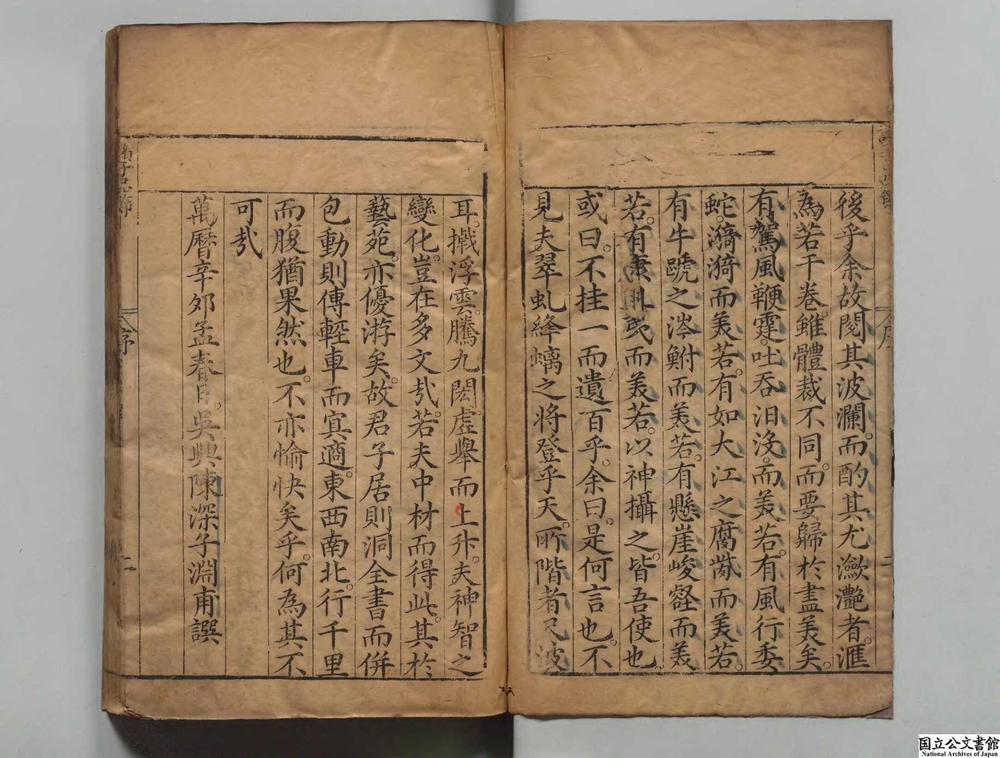 後乎余故閱其波瀾而酌其尤瀲灩者滙
為若干卷雖體裁不同而要歸於盡美矣
有駕風鞭霆吐吞汨沒而美若有風行委
蛇漪漪而美若有如大江之腐胾而美若
有牛蹏之涔鮒而美若有懸崖峻壑而美
若有而美若以神攝之皆吾使也
或曰不挂一而遺百乎余曰是何言也不
見夫翠虬絳螭之将登乎天所階者尺波
耳摡浮雲騰九閎虛舉而上升夫神智之
變化豈在多文㢤若夫中材而得此其於
藝苑亦優游矣故君子居則洞全書而併
包動則傳輕車而寘適東西南北行千里
而腹猶果然也不亦愉快矣乎何為其不
可㢤
萬曆辛夘孟春日吳興陳深子淵甫譔
序
二
序
二
国立公文書館
National Archives of Japan